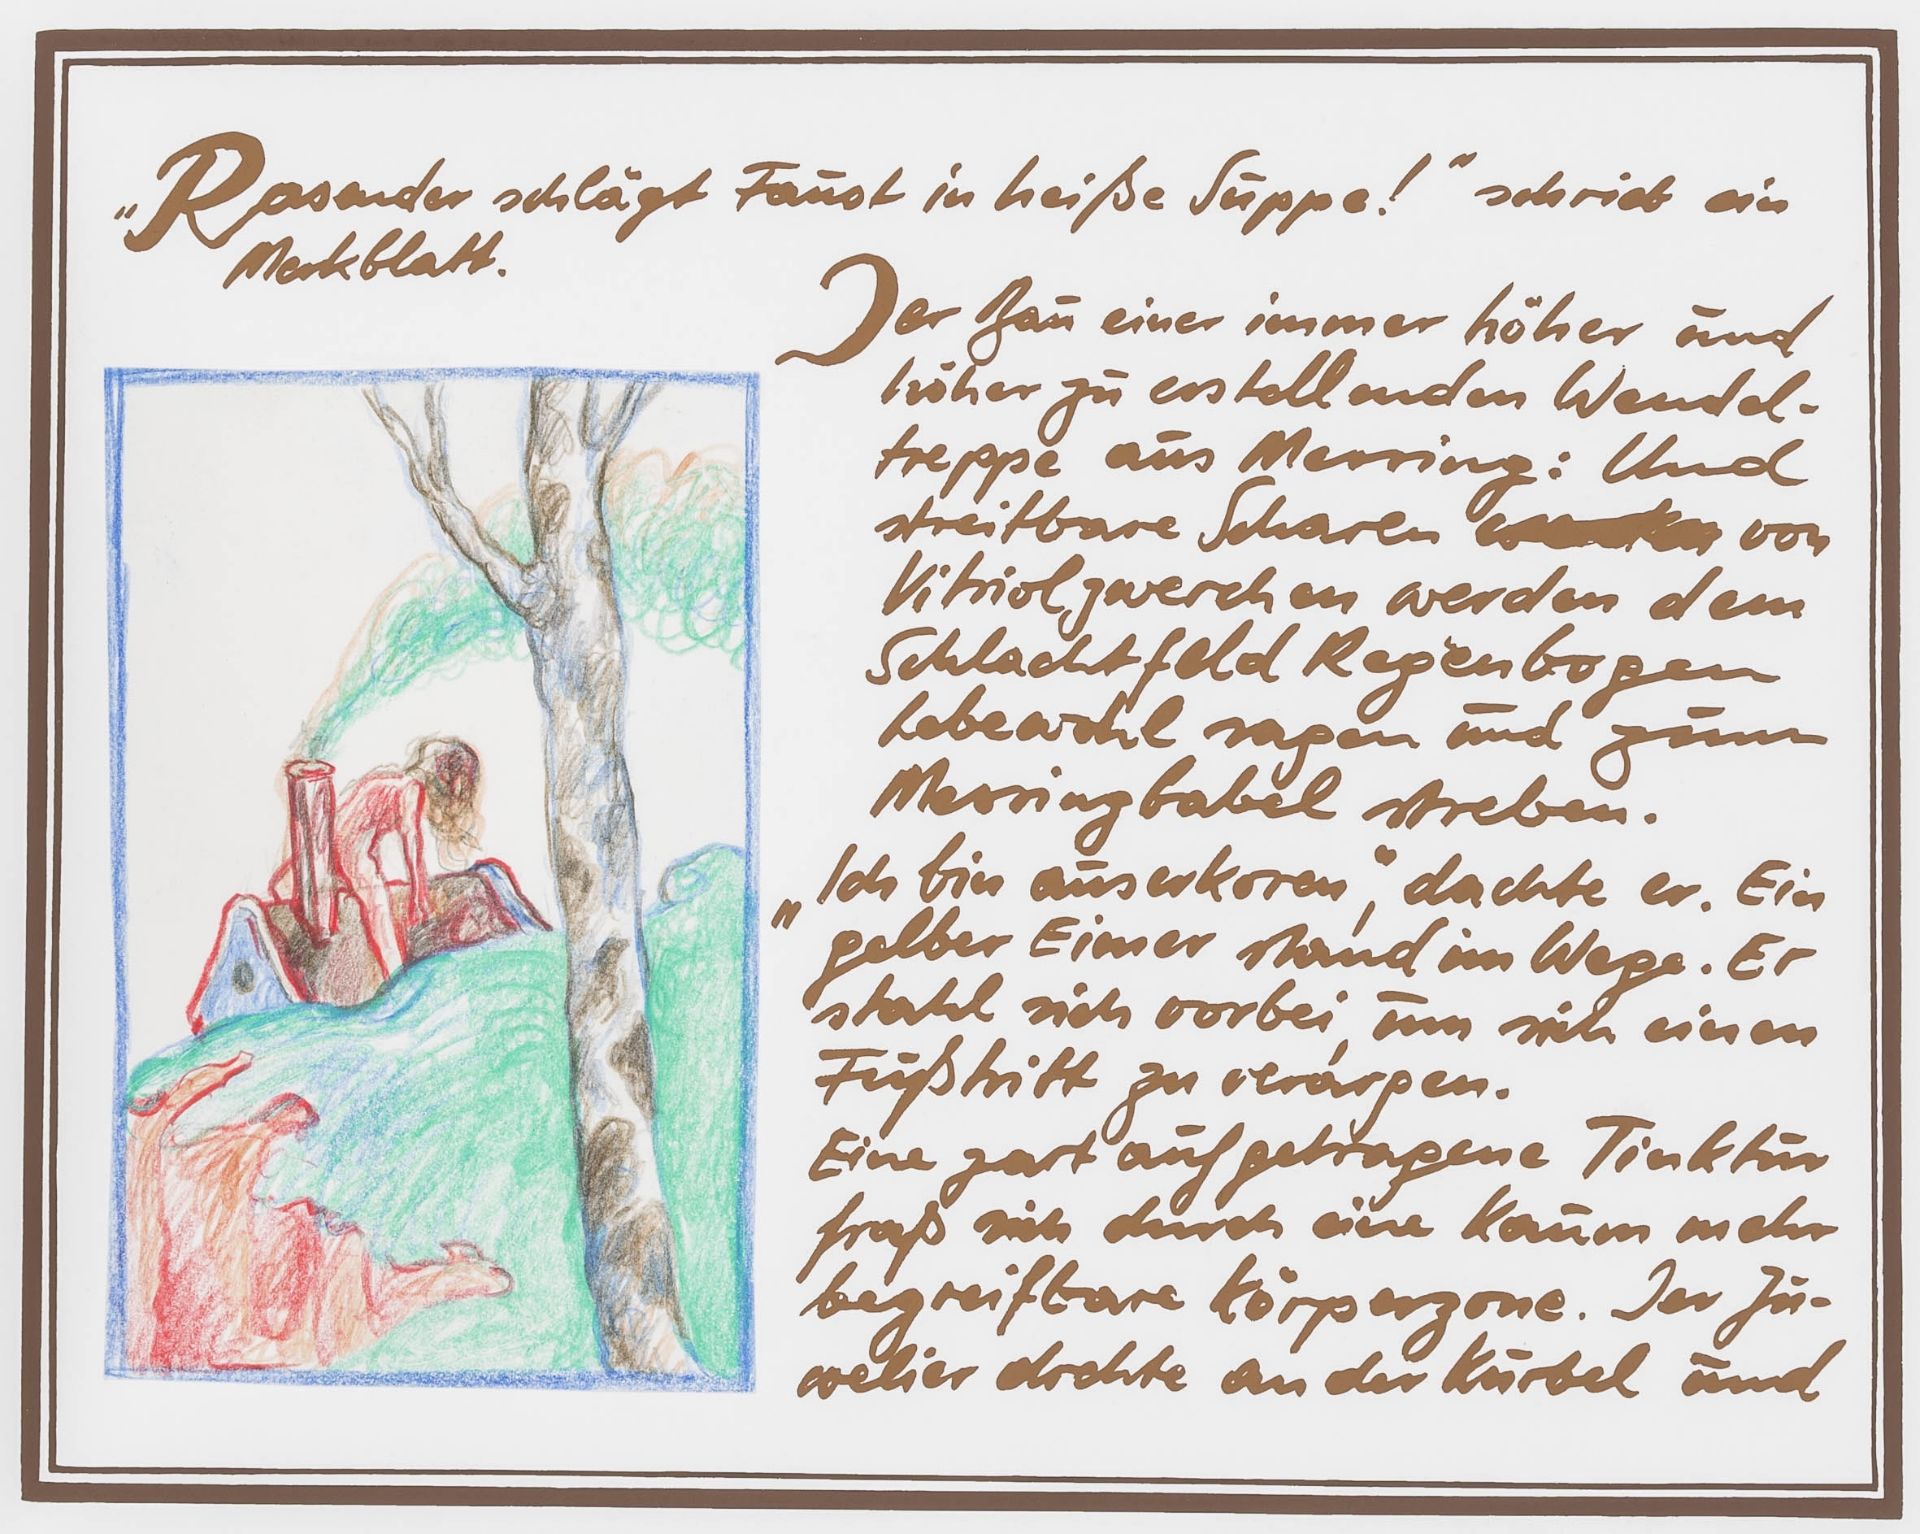 „Rasender schlägt Faust in heiße Suppe!" schrieb ein
Merkblatt.
Der Bau einer immer höher und
höher zu erstellenden Wendel-
treppe aus Messing: Und
streitbare Scharen von
Vitriolzwerchen werden dem
Schlachtfeld Regenbogen
Lebewohl sagen und zum
Messingbabel streben.
„Ich bin auserkoren", dachte er. Ein
gelber Eimer stand im Wege. Er
stahl sich vorbei, um sich einen
Fußtritt zu verargen.
Eine zart aufgetragene Tinktur
fraß sich durch eine kaum mehr
begreifbare Körperzone. Der Ju-
welier drehte an der Kurbel und